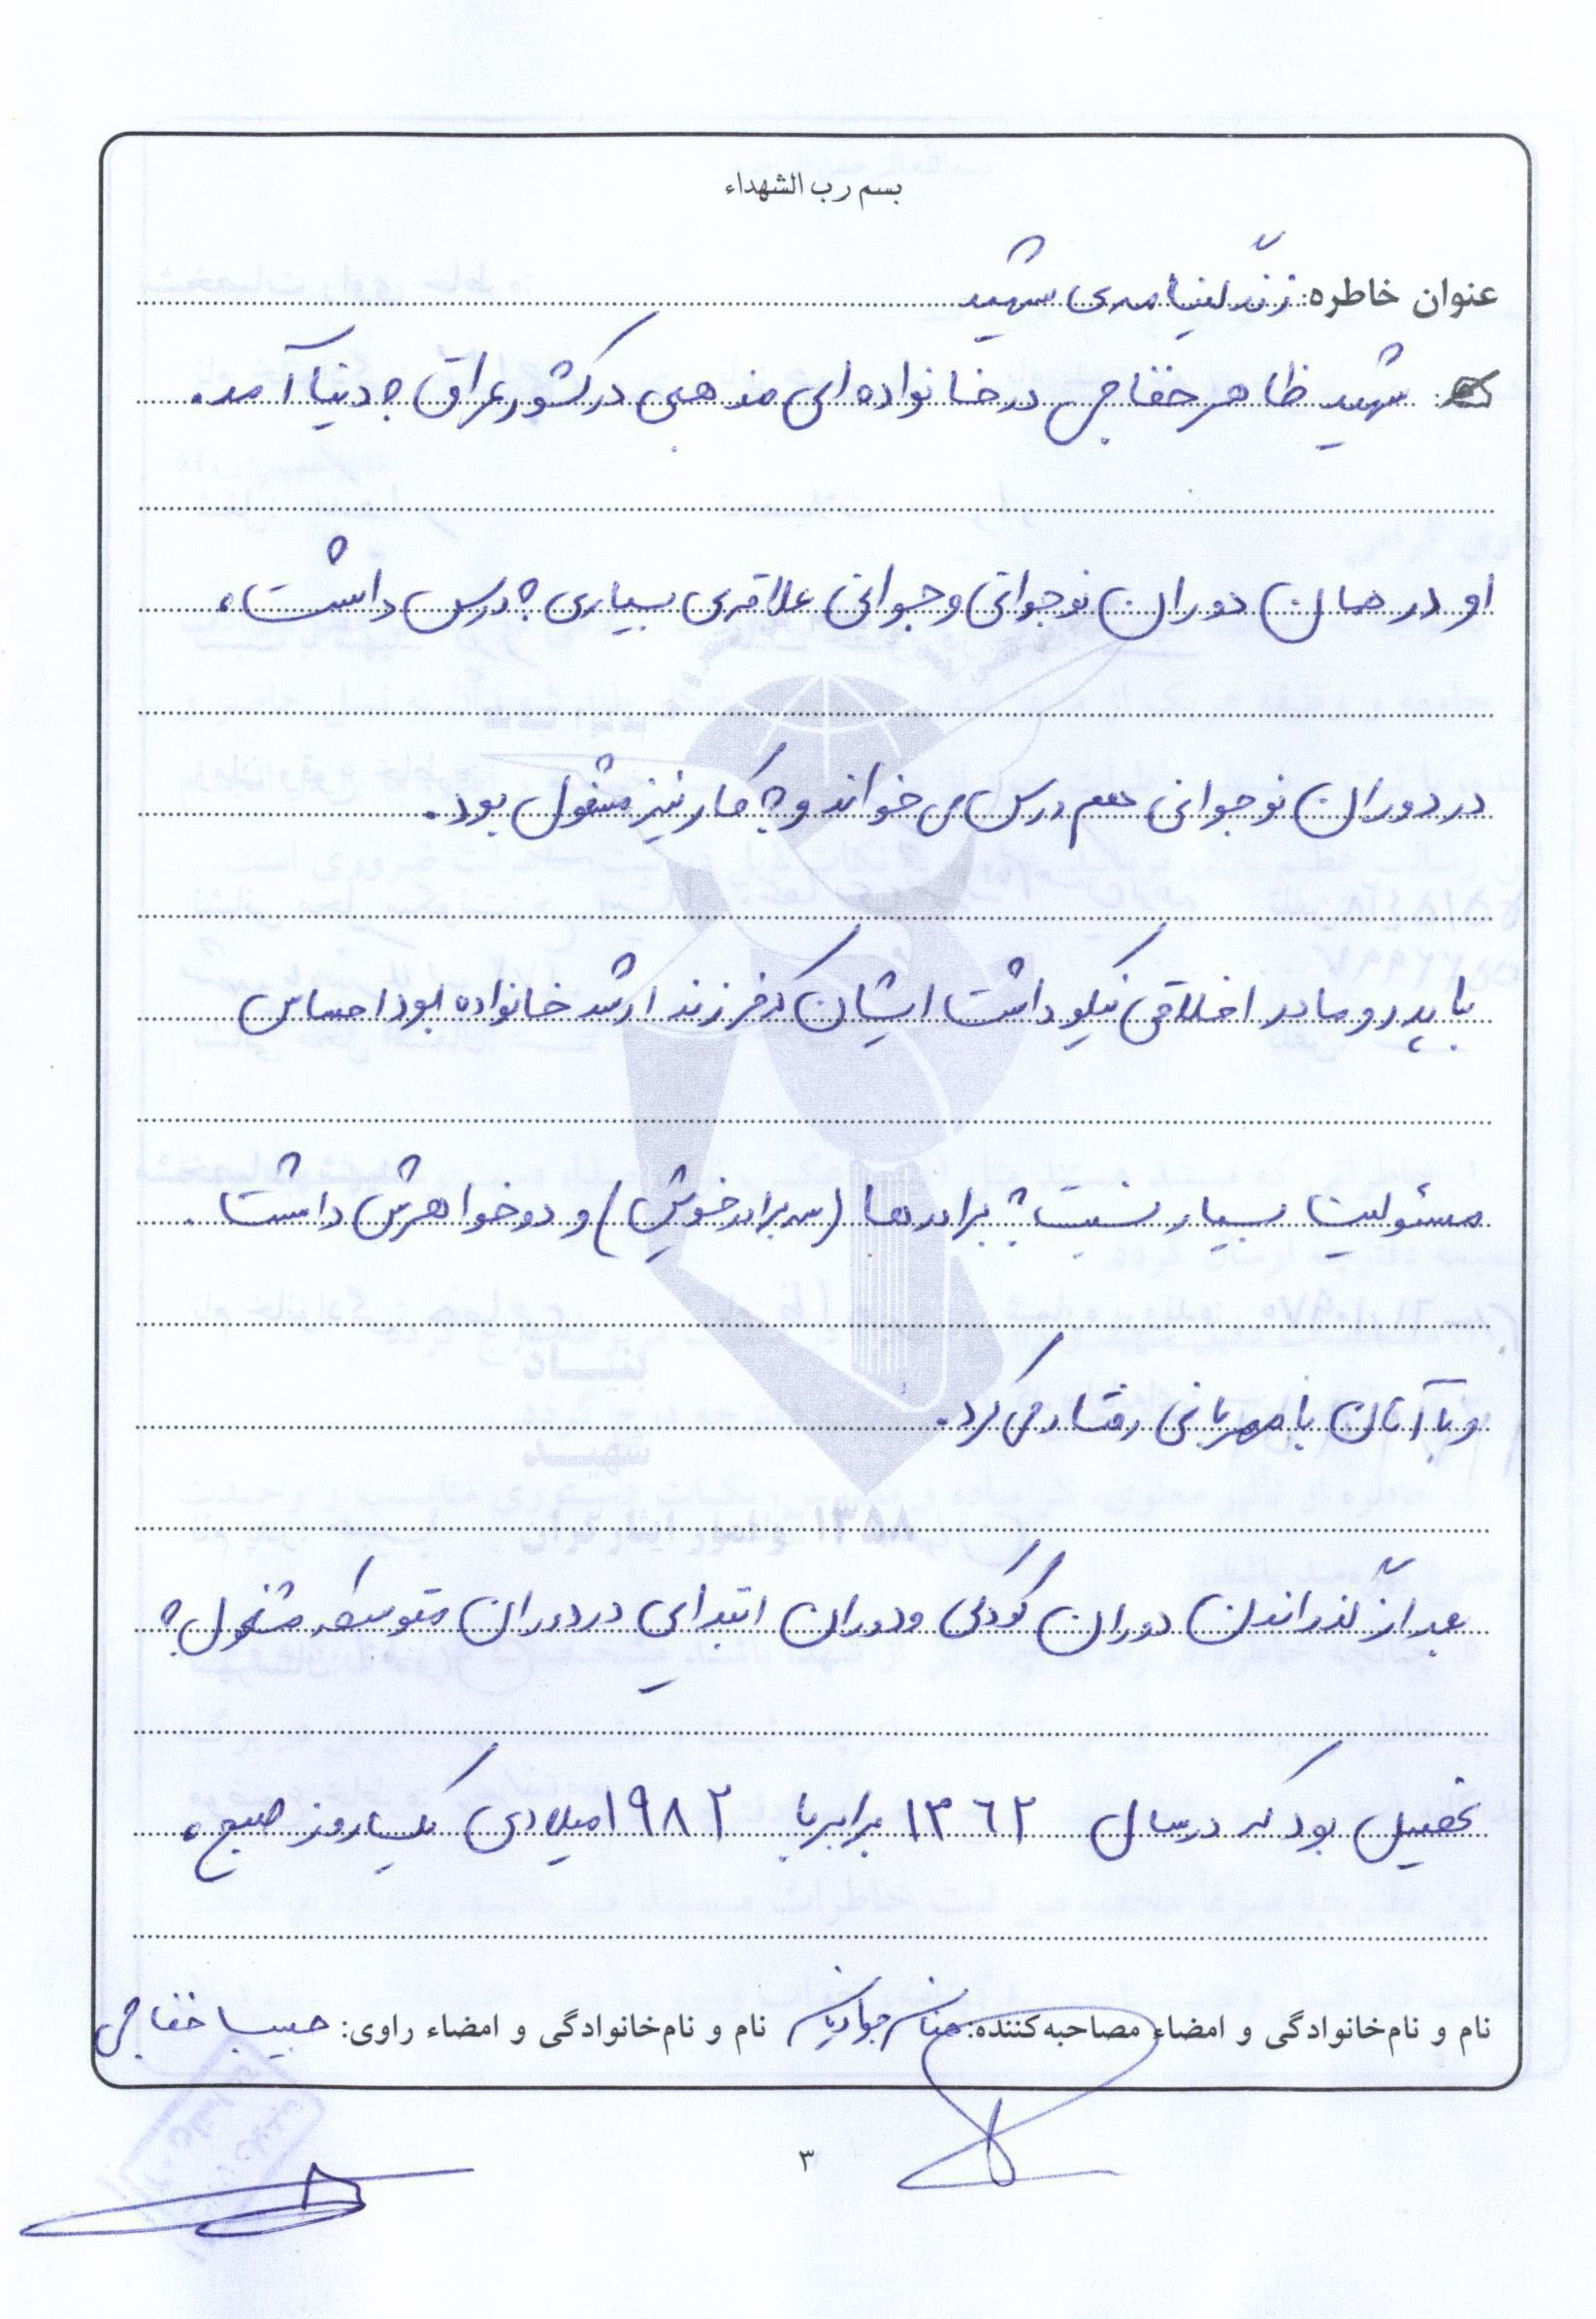 بسم رب الشهداء
عنوان خاطره: زندگینامه‌ی شهید
شهید ظاهر خفاجی در خانواده ای مذهبی در کشور عراق به دنیا آمد.
او در همان دوران نوجوانی و جوانی علاقه‌ی بسیاری به درس داشت،
در دوران نوجوانی هم درس می خواند و به کار نیز مشغول بود.
با پدر و مادر اخلاقی نیکو داشت ایشان که فرزند ارشد خانواده بود احساس
مسئولیت بسیار نسبت به برادرها (سه برادر خویش) و دو خواهرش داشت.
و با آنان با مهربانی رفتار می کرد.
بعد از گذراندن دوران کودکی و دوران ابتدایی در دوران متوسطه مشغول به
تحصیل بود که در سال ۱۳۶۲ برابر با ۱۹۸۲ میلادی یک روز صبح،
نام و نام‌خانوادگی و امضاء مصاحبه‌کننده: نام و نام‌خانوادگی و امضاء راوی: حبیب خفاجی
۳
۱۳۵۸